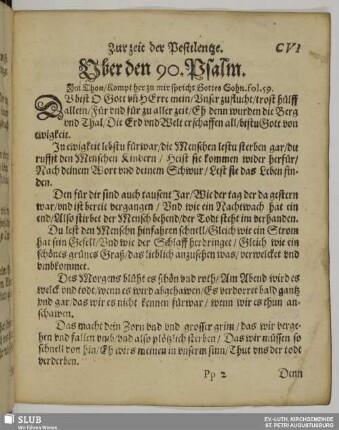 Zur zeit der Pestilentze. CVI
Vber den 90. Psalm.
Im Thon / Kompt her zu mir spricht Gottes Sohn. fol. 59.
DV bist O Gott vñ HErre mein / Vnser zuflucht / trost hülff
allein / Für vnd für zu aller zeit / Eh denn wurden die Berg
vnd Thal / Die Erd vnd Welt erschaffen all / bistu Gott von
ewigkeit.
In ewigkeit lebstu fürwar / die Menschen lestu sterben gar / du
ruffst den Menschen Kindern / Heist sie kommen wider herfür /
Nach deinem Wort vnd deinem Schwur / Lest sie das Leben fin-
den.
Den für dir sind auch tausent Jar / Wie der tag der da gestern
war / vnd ist bereit vergangen / Vnd wie ein Nachtwach hat ein
end / Also stirbet der Mensch behend / der Todt steht im verhanden.
Du lest den Menschn hinfahren schnell / Gleich wie ein Strom
hat sein Gefell / Vnd wie der Schlaff herdringet / Gleich wie ein
schönes grünes Graß / das lieblich anzusehen was / verwelcket vnd
vmbkommet.
Des Morgens blühet es schön vnd roth / Am Abend wird es
welck vnd todt / wenn es wird abgehawen / Es verdorret bald gantz
vnd gar / das wir es nicht kennen fürwar / wenn wir es thun an-
schawen.
Das macht dein Zorn vnd vnd grosser grim / das wir verge-
hen vnd fallen vmb / vnd also plötzlich sterben / Das wir müssen so
schnell von hin / Eh wirs meinen in vnserm sinn / Thut vns der todt
verderben.
Pp 2 Denn
SLUB
Wir führen Wissen.
EV.-LUTH. KIRCHGEMEINDE
ST. PETRI AUGUSTUSBURG